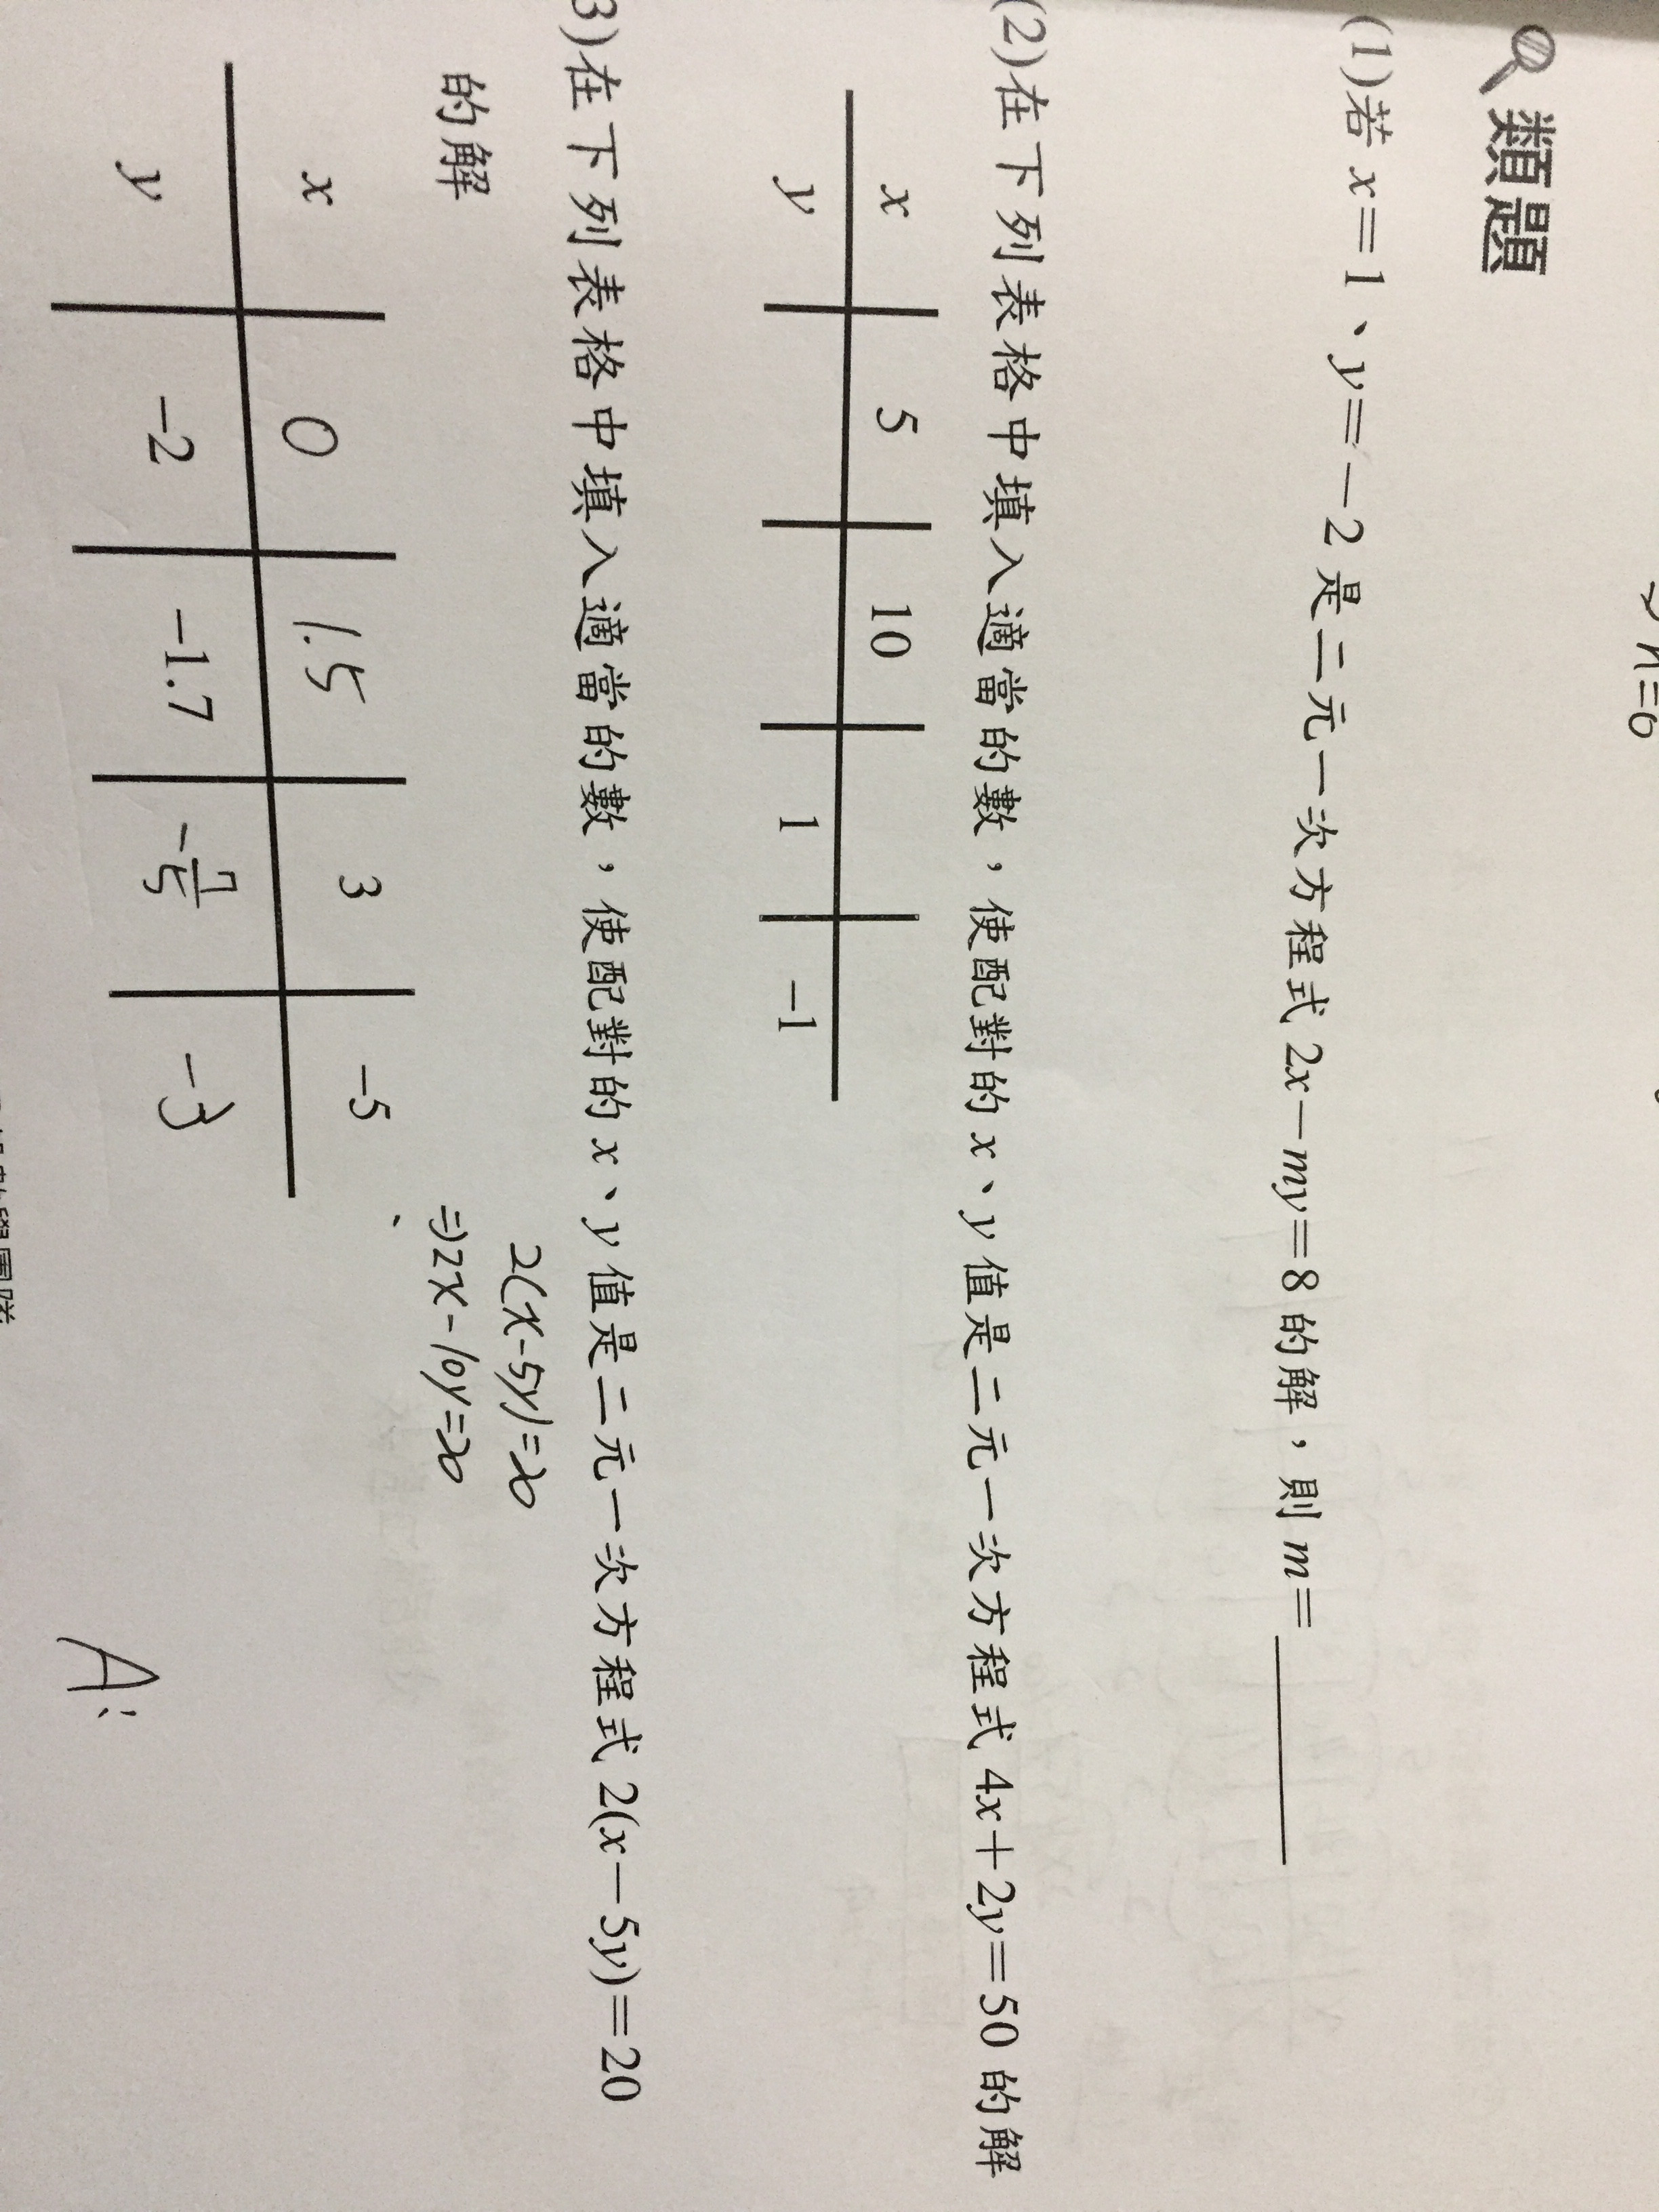 n=6
類題
(1)若 x=1、y=-2 是二元一次方程式 2x-my=8 的解，則 m=
(2)在下列表格中填入適當的數，使配對的 x、y 值是二元一次方程式 4x+2y=50 的解
x 5 10
y 1 -1
3)在下列表格中填入適當的數，使配對的 x、y 值是二元一次方程式 2(x-5y)=20
的解
2(x-5y)=20
⇒2x-10y=20
x 0 1.5 3 -5
y -2 -1.7 -7/5 -3
A: